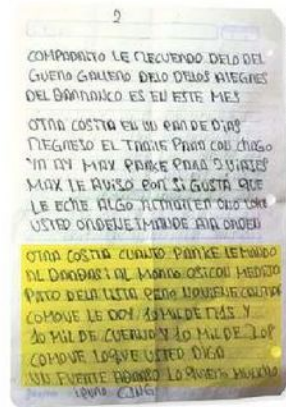 2
COMPADRITO LE RECUERDO DELO DEL
GUENO GALLERO DELO DELOS ALEGRES
DEL BARRANCO ES EN ESTE MES
OTRA COSITA EN UN PAR DE DIAS
REGRESO EL TRAITE PARA CON CHAGO
YA AY MAX PARKE PARA 2 VIAJES
MAX LE AVISO POR SI GUSTA QUE
LE ECHE ALGO
USTED ORDENE I MANDE A LA ORDEN
OTRA COSITA CUANTO PARKE LE MANDO
AL BARBAS I AL MORRO OSICON MEDIJO
PATO DELA LISTA PERO
COMOVE LE DOY 10 MIL DE 7.65 Y
10 MIL DE CUERNO Y 10 MIL DE 308
COMOVE LO QUE USTED DIGA
UN FUERTE ABRAZO LO MUCHO
CJNG